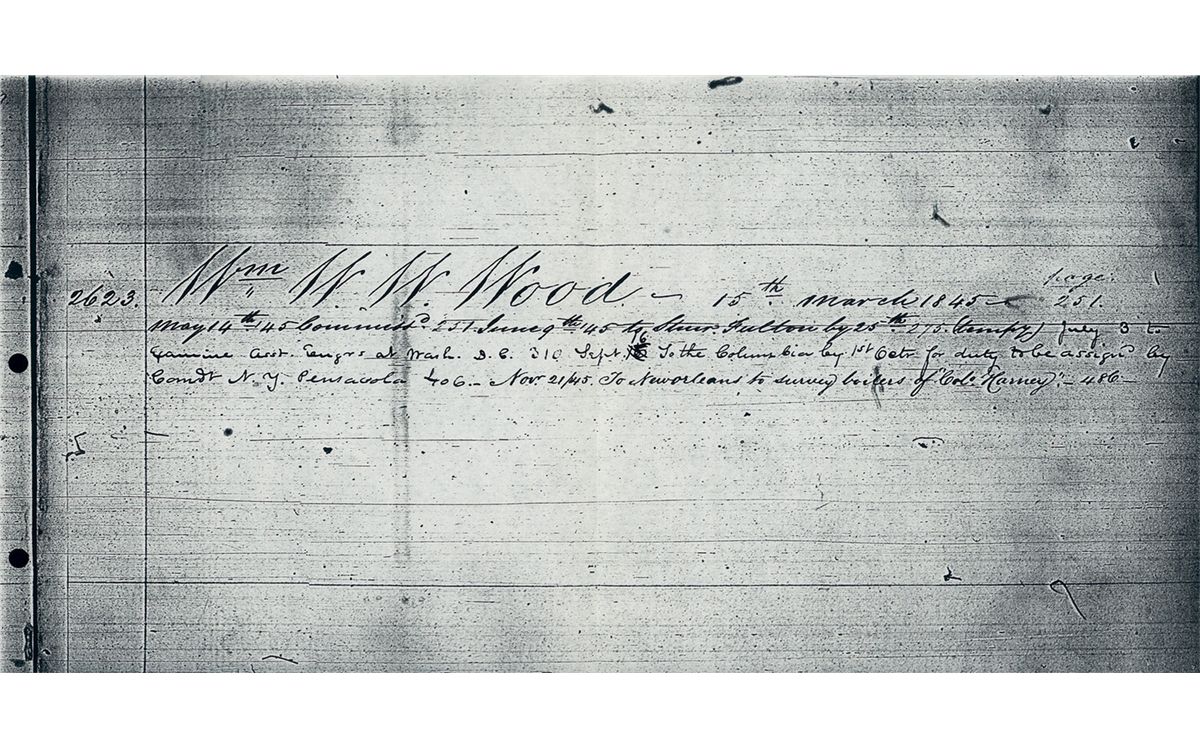 page:
2623. Wm W. W. Wood. — 15th March 1845 — 251.
May 14th 45 Commissd. 251. June 9th 45 to Steamr. Fulton by 25th 275. (tempy) July 3 to
Examine Asst. Engrs at Wash. D.C. 310 Sept. 16 To the Columbia by 1st Octr for duty to be assignd by
Comdt N.Y. Pensacola 406. — Nov 21/45. To New orleans to survey boilers of "Colo. Harney". — 486 —